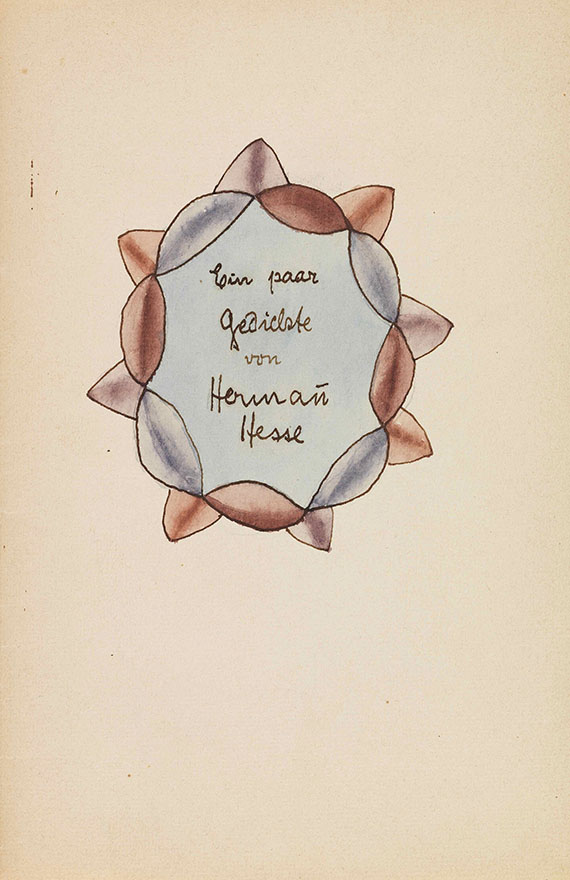 Ein paar
Gedichte
von
Hermañ
Hesse